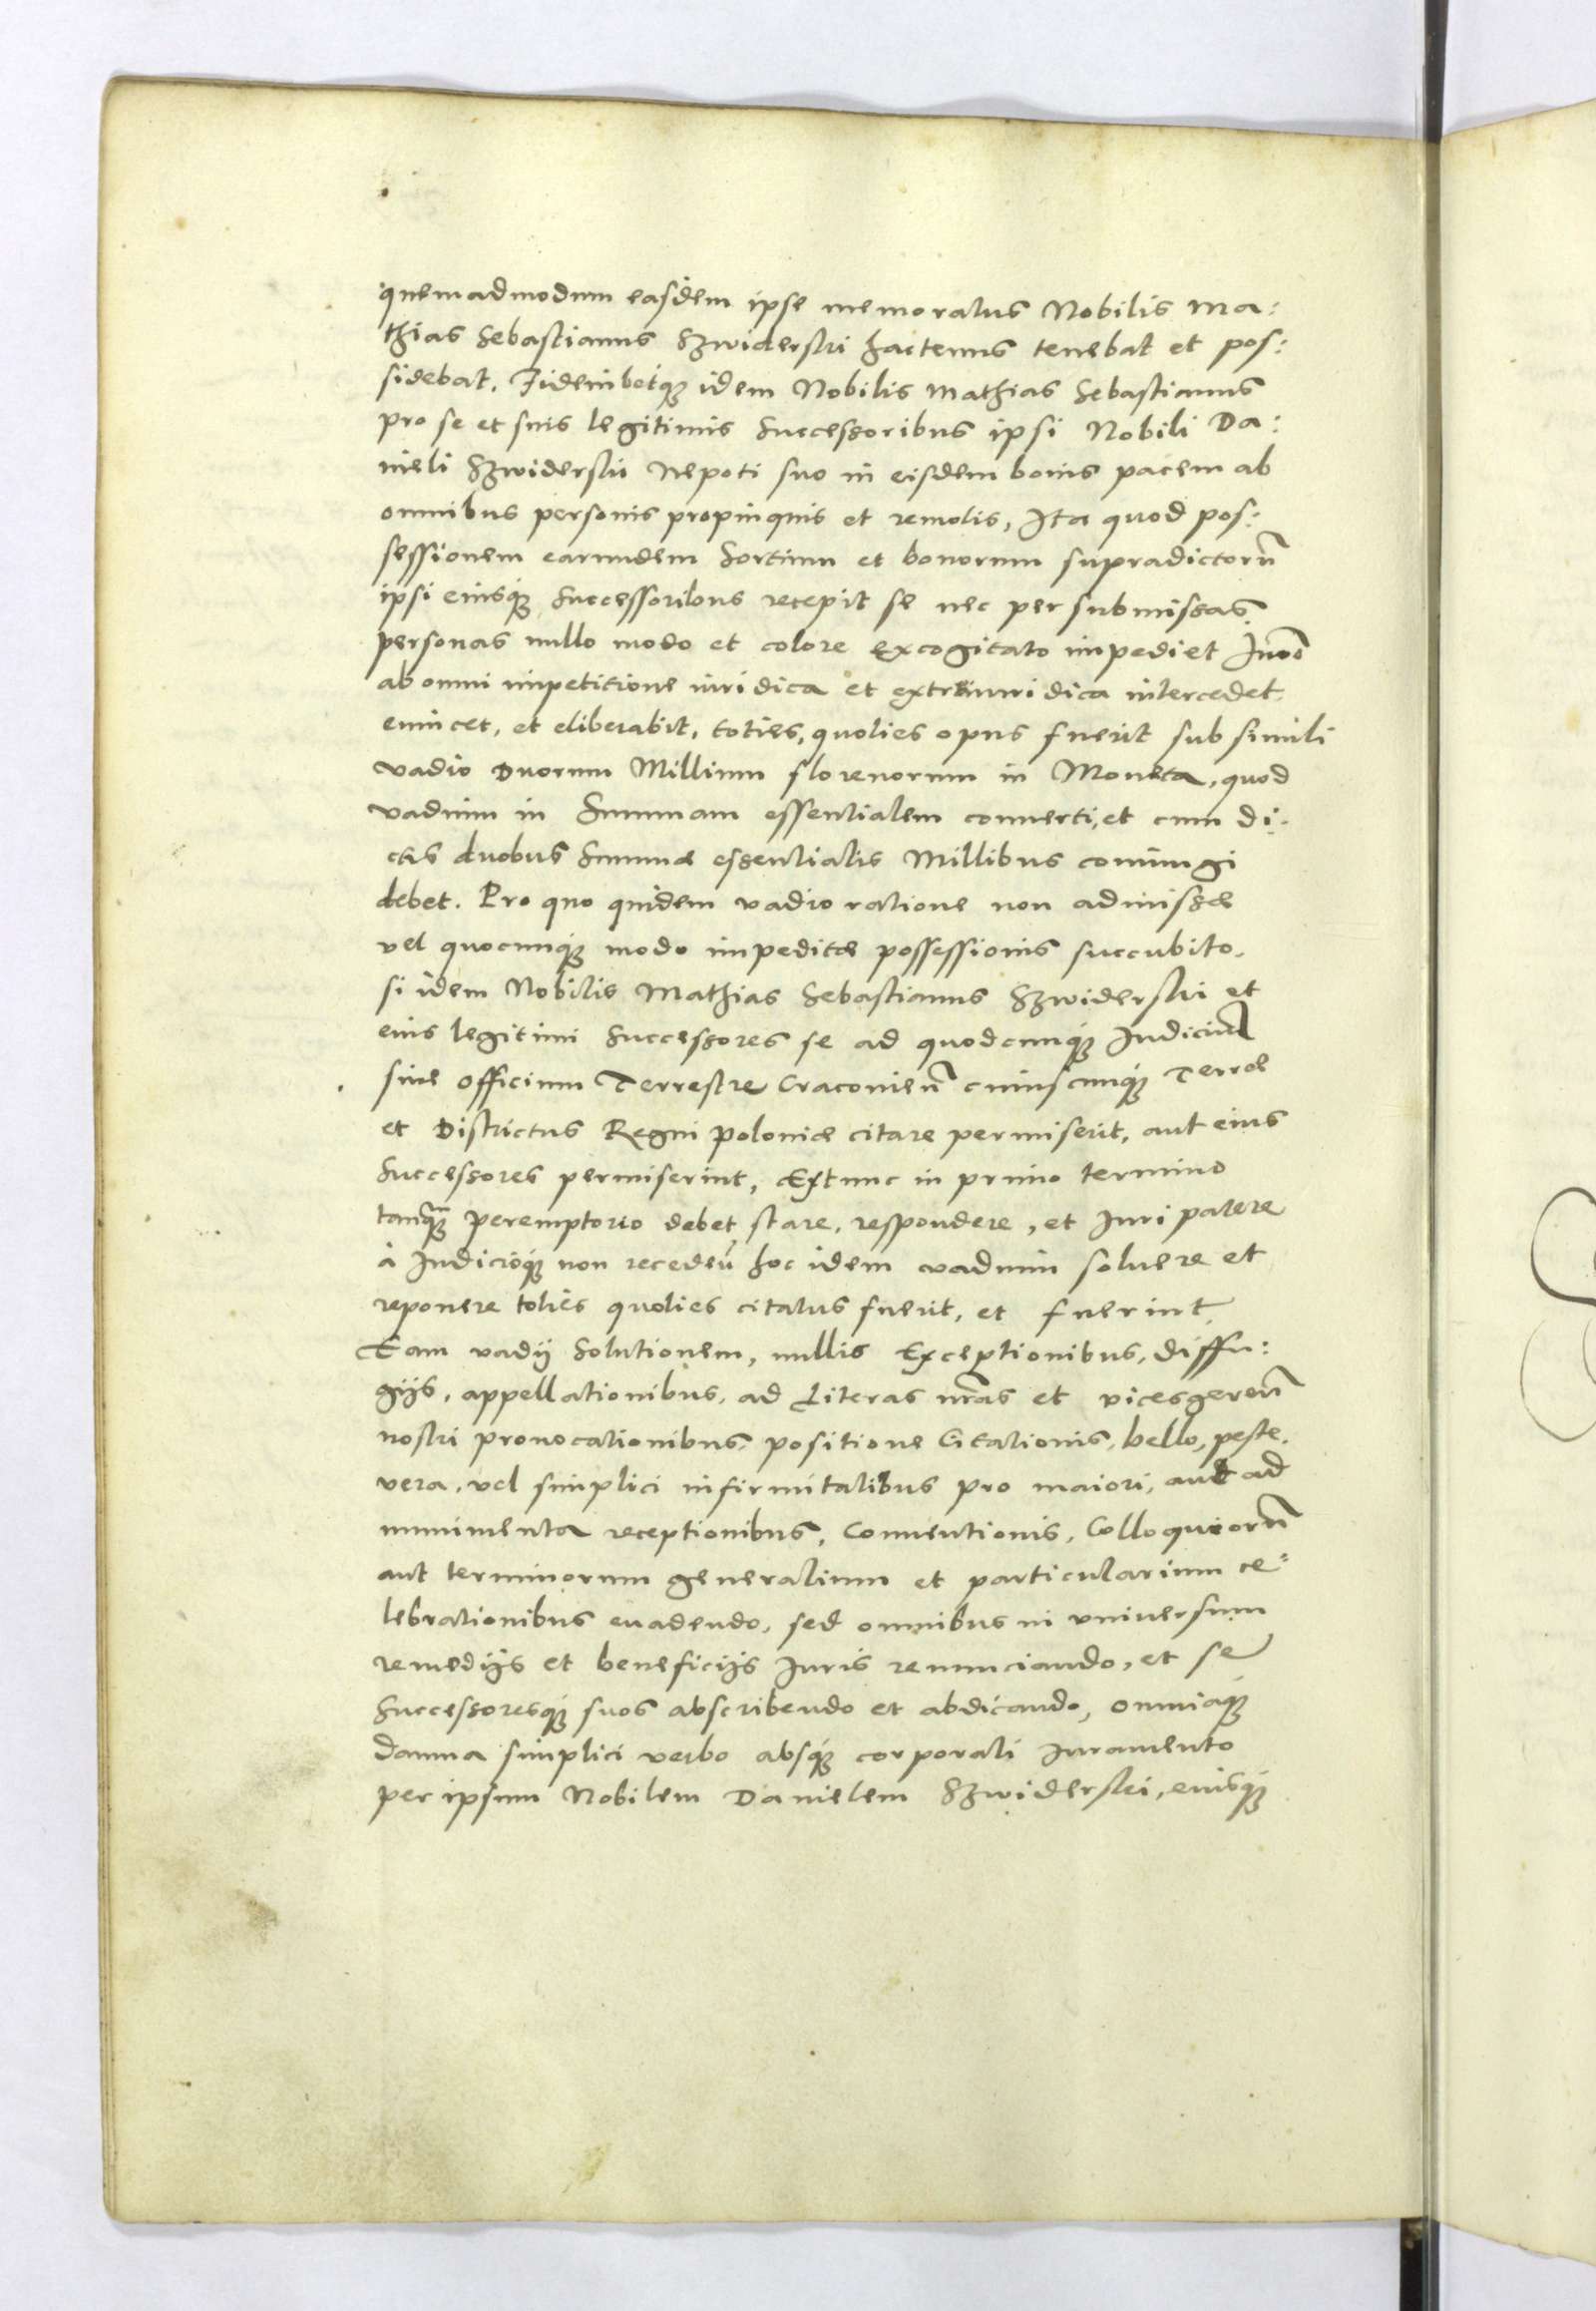 quemadmodum easdem ipse memoratus Nobilis Ma:
thias Sebastianus Szwiderski hactenus tenebat et pos:
sidebat. Fideiubetq́ue idem Nobilis Mathias Sebastianus
pro se et suis legitimis Successoribus ipsi Nobili Da:
nieli Szwiderski Nepoti suo in eisdem bonis pacem ab
omnibus personis propinquis et remotis, Ita quod pos:
sessionem earundem Sortium et bonorum supradictorũ
ipsi eiusq́ue Successoribus recepit se nec per submissas
personas nullo modo et colore excogitato impediet Imõ
ab omni impetitione iuridica et extraiuridica intercedet
euincet, et eliberabit, toties, quoties opus fuerit sub simili
vadio Duorum Millium florenorum in Moneta, quod
vadium in Summam essentialem conuerti, et cum di:
ctis duobus Summæ essentialis Millibus coniungi
debet. Pro quo quidem vadio ratione non admissæ
vel quocunq́ue modo impeditæ possessionis succubito,
si idem Nobilis Mathias Sebastianus Szwiderski et
eius legitimi Successores se ad quodcunq́ue Iudiciũ
siue officium Terrestre Cracovieñ cuiuscunq́ue Terræ
et Districtus Regni Poloniæ citare permiserit, aut eius
Successores permiserint, Extunc in primo termino
tanq̃uam peremptorio debet stare, respondere, et Iuri parere
à Iudicioq́ue non recedeñ hoc idem vadium soluere et
reponere toties quoties citatus fuerit, et fuerint
Eam vadij Solutionem, nullis Exceptionibus, diffu:
gijs, appellationibus, ad Literas nr̃as et vicesgereñ
nostri prouocationibus, positione Citationis, bello, peste,
vera, vel simplici infirmitatibus pro maiori, aut ad
munimenta receptionibus, Conuentionis, Colloquiorũ
aut terminorum generalium et particularium ce=
lebrationibus euadendo, sed omnibus in vniuersum
remedijs et beneficijs Iuris renunciando, et se
Successoresq́ue suos abscribendo et abdicando, omniaq́ue
damna simplici verbo absq́ue corporali Iuramento
per ipsum Nobilem Danielem Szwiderski, eiusq́ue